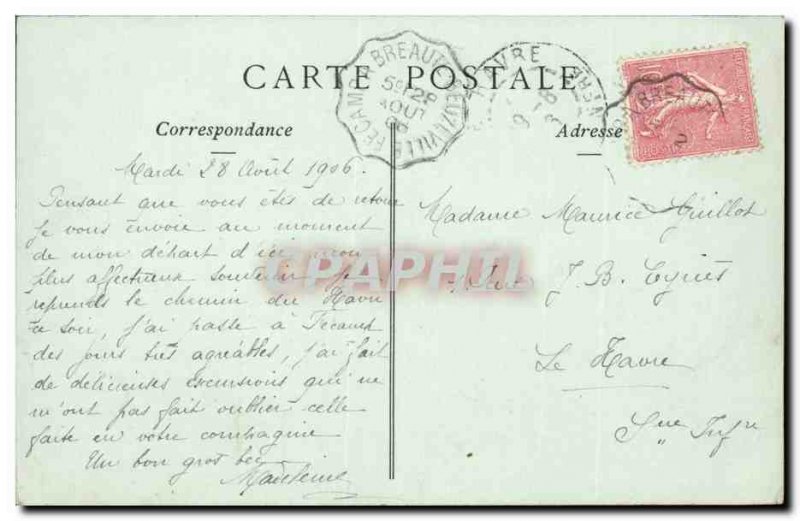 CARTE POSTALE
FÉCAMP A BREAUTÉ-BEUZEVILLE
AOUT
HAVRE
Correspondance
Adresse
Mardi 28 Août 1906.
Pensant que vous êtes de retour
je vous envoie au moment
de mon départ d'ici mon
plus affectueux souvenir. Je
reprends le chemin du Havre
ce soir, j'ai passé à Fécamp
des jours très agréables, j'ai fait
de délicieuses excursions qui ne
m'ont pas fait oublier celle
faite en votre compagnie
Un bon gros bec
Madeleine
Madame Maurice Guillot
J. B. Eyriès
Le Havre
Sne Infre
CPAPHIL